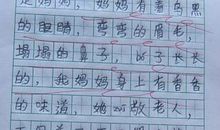 是妈妈,妈妈有着乌黑
的眼睛,弯弯的眉毛,
塌塌的鼻子,脖子长长
的,我妈妈身上有香香
的味道,她
敬老人,